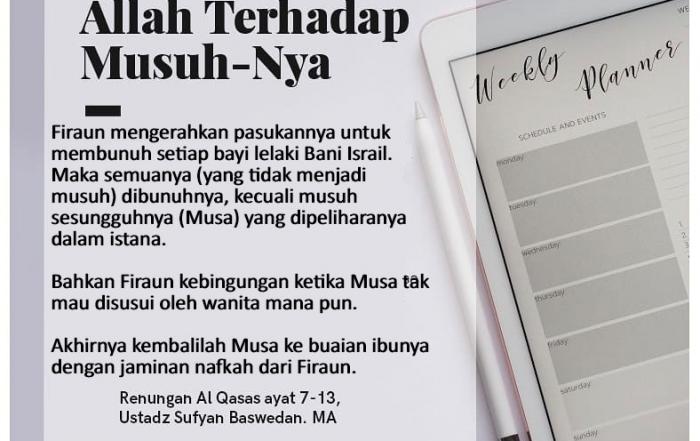 Allah Terhadap
Musuh-Nya
Firaun mengerahkan pasukannya untuk
membunuh setiap bayi lelaki Bani Israil.
Maka semuanya (yang tidak menjadi
musuh) dibunuhnya, kecuali musuh
sesungguhnya (Musa) yang dipeliharanya
dalam istana.
Bahkan Firaun kebingungan ketika Musa tak
mau disusui oleh wanita mana pun.
Akhirnya kembalilah Musa ke buaian ibunya
dengan jaminan nafkah dari Firaun.
Renungan Al Qasas ayat 7-13,
Ustadz Sufyan Baswedan. MA
Weekly Planner
SCHEDULE AND EVENTS
monday
tuesday
wednesday
thursday
friday
saturday
sunday